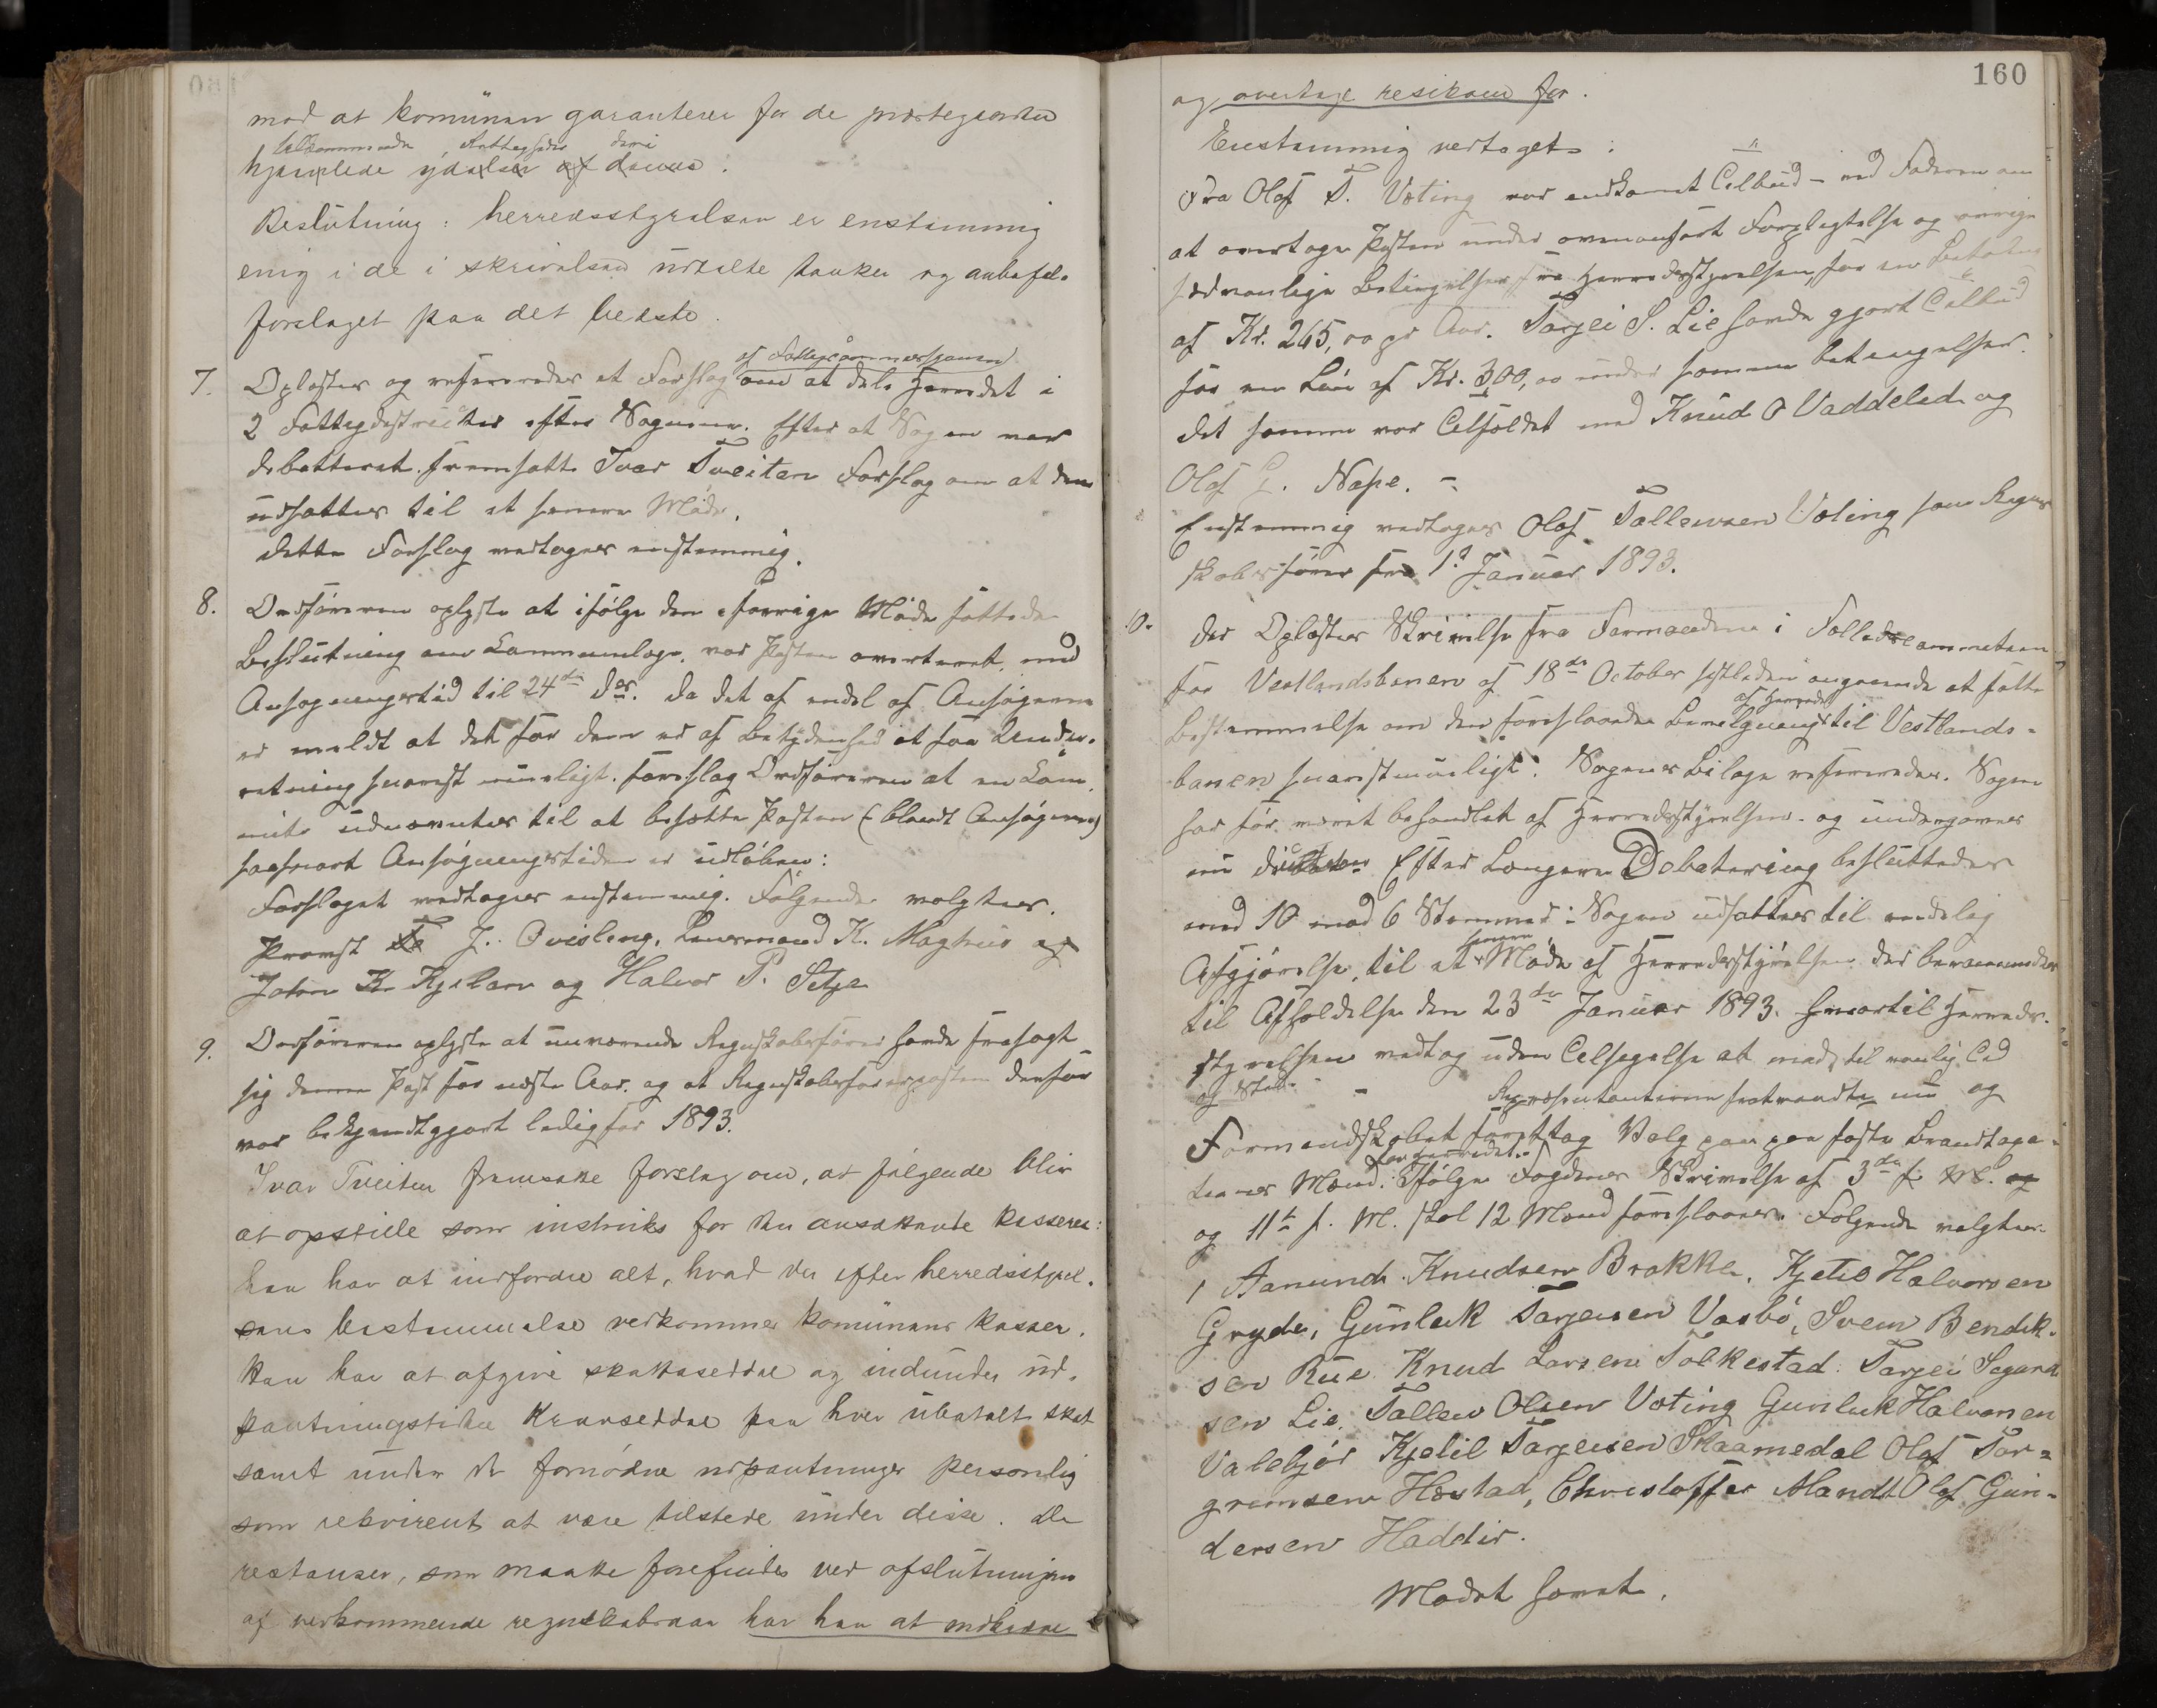 mod at kommünen garanterer for de præstegaarden
tilkommende Rettigheder deri
hjemlede ydelser af denne.
Beslütning: herredsstyrelsen er enstemmig
enig i de i skrivelsen üdtalte tanker og anbefale
forslaget paa det bedste.
af Fattigcommissionen
7. Oplæstes og refereredes et Forslag om at dele Herredet i
2 Fattigdistricter efter Sognene. Efter at Sagen var
debatteret fremsatte Ivar Tveiten Forslag om at den
üdsættes til et senere Møde.
dette Forslag vedtages enstemmig.
8. Ordføreren oplyste at ifølge den i forrige Møde fattede
Beslütning om Kommunelæge, var Posten averteret med
Ansøgningstid til 24de ds. da det af endel af Ansøgerne
er meldt at det for dem er af Betydenhed at faa Under-
retning snarest müligt. foreslog Ordføreren at en Kom-
mite üdnævntes til at besætte Posten (blandt Ansøgerne)
saasnart Ansøgningstiden er üdløben:
Forslaget vedtages enstemmig. Følgende valgtes.
Provst J. Qvisling, Lensmand K. Maghus og
John K. Kjelam og Halvor P. Setje
9. Ordføreren oplyste at nuværende Regnskabsfører havde frasagt
sig denne Post for næste Aar. og at Regnskabsførerposten derfor
var bekjendtgjort ledig for 1893.
Ivar Tveiten fremsatte forslag om, at følgende blir
at opstille som instruks for den ansættende kasserer:
han har at indfordre alt, hvad der efter herredsstyrel-
sens bestemmelse vedkommer kommünens kasser.
han har at afgive skattesedler og indünder üd-
pantningstiden kravsedler paa hver übetalt skat
samt ünder de fornødne udpantninger personlig
som rekvirent at være tilstede ünder disse. De
restanser, som maatte forefindes ved afslütningen
af vedkommende regnskabsaar har han at indbetale
160
og overtage resikoen for.
Enstemmig vedtaget:
Fra Olaf T. Vøting var indkomet Tilbüd – ved Faderen om
at overtage Posten ünder ovenanført Forpligtelse og øvrige
sædvanlige Betingelser fra Herredsstyrelsen, for en Betaling
af Kr. 265,00 pr Aar. Tarjei S. Lie havde gjort Tilbud
for en Løn af Kr. 300,00 ünder samme betingelser.
det samme var Tilfældet med Knud O Vaddeland og
Olaf G. Nape. –
Enstemmig vedtages Olaf Tallevsen Vøting som Regn-
skabsfører fra 1ste Januar 1893.
10. der Oplæstes Skrivelse fra Formanden i Fælledscommiteen
for Vestlandsbanen af 18de October sistleden angaaende at fatte
af Herredet
bestemmelse om den foreslaaede Bevilgning til Vestlands-
banen snarest müligt. Sagens Bilage refereredes. Sagen
har før været behandlet af Herredsstyrelsen. og undergaves
nu Efter Længere Debatering besluttedes
med 10 mod 6 Stemmer: Sagen üdsættes til endelig
senere
Afgjørelse, til et Møde af Herredsstyrelsen der berammedes
til Afholdelse den 23de Januar 1893. Hvortil Herreds-
styrelsen vedtog üden Tilsigelse at møde til vanlig Tid
og Sted. – Repræsentanterne fratraadte nü og
Formandskabet foretog Valg paa paa faste Brandtaxa-
for Herredet.
tionsmænd. Ifølge Fogdens Skrivelse af 3de f. M. og
og 11te f. M. skal 12 Mænd foreslaaes. Følgende valgtes.
1 Aanund Knudsen Brokke, Kjetil Halvorsen
Gryde, Günleik Tarjeisen Vasbø, Svein Bendik-
sen Rüe Knud Larsen Tolkestad. Tarjei Segurd
sen Lie. Tallev Olsen Vøting Gunleik Halvorsen
Valebjør Kjetil Tarjeisen Skaamedal Olaf Tor-
grimsen Hæstad, Christoffer Mandt Olaf Gün-
dersen Haddir.
Mødet hævet.